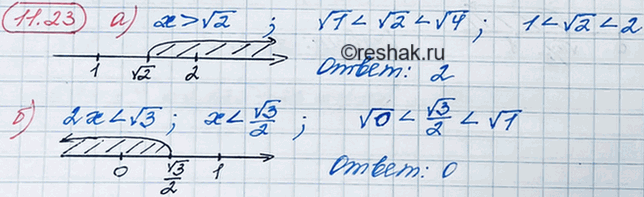 11.23 а) x > √2 ; √1 < √2 < √4 ; 1 < √2 < 2
©reshak.ru
1 √2 2 Ответ: 2
б) 2x < √3 ; x < √3/2 ; √0 < √3/2 < √1
0 √3/2 1 Ответ: 0